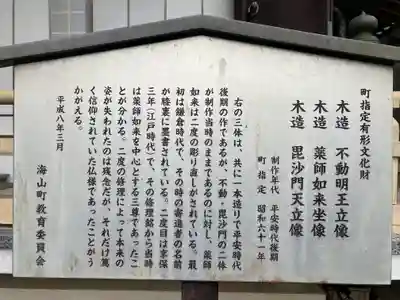 町指定有形文化財
木造 不動明王立像
木造 薬師如来坐像
木造 毘沙門天立像
制作年代 平安時代後期
町指定 昭和六十一年
右の三体は、共に一本造りで平安時代
後期の作であるが、不動・毘沙門の二体
が制作当時のままであるのに対し、薬師
如来は二度の彫り直しがされている。最
初は鎌倉時代で、その時の寄進者の名前
が膝裏に墨書されている。二度目は享保
三年(江戸時代)で、その修理銘から当時
は薬師如来を中心とする三尊であったこ
とが分かる。二度の修理によって本来の
姿が失われたのは残念だが、それだけ篤
く信仰されていた仏様であったことがう
かがえる。
平成八年三月
海山町教育委員会